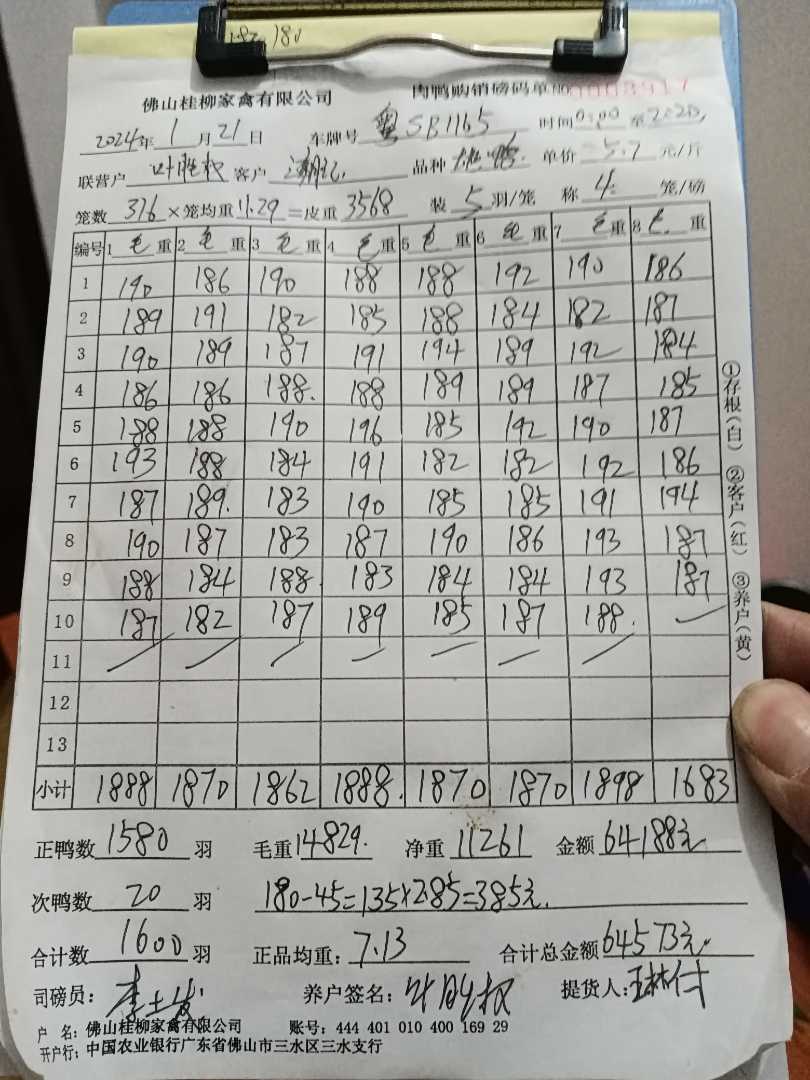 182 180
佛山桂柳家禽有限公司 肉鸭购销磅码单NO 0008917
2024年1月21日 车牌号 粤SB1165 时间0:00至2:20
联营户 叶胜权 客户 品种 单价 5.7 元/斤
笼数 316 ×笼均重 11.29 =皮重 3568 装 5 羽/笼 称 4 笼/磅
编号 1 毛重 2 毛重 3 毛重 4 毛重 5 毛重 6 毛重 7 毛重 8 毛重
1 190 186 190 188 188 192 190 186
2 189 191 182 185 188 184 182 187
3 190 189 187 191 194 189 192 184
4 186 186 188. 188 189 189 187 185
5 188 188 190 196 185 192 190 187
6 193 188 184 191 182 182 192 186
7 187 189. 183 190 185 185 191 194
8 190 187 183 187 190 186 193 187
9 188 184 188 183 184 184 193 187
10 187 182 187 189 185 187 188.
11
12
13
小计 1888 1870 1862 1888. 1870 1870 1898 1683
①存根(白) ②客户(红) ③养户(黄)
正鸭数 1580 羽 毛重 14829. 净重 11261 金额 64188元
次鸭数 20 羽 180-45=135×2.85=385元.
合计数 1600 羽 正品均重: 7.13 合计总金额 64573元
司磅员: 养户签名: 叶胜权 提货人:
户 名: 佛山桂柳家禽有限公司 账号: 444 401 010 400 169 29
开户行: 中国农业银行广东省佛山市三水区三水支行